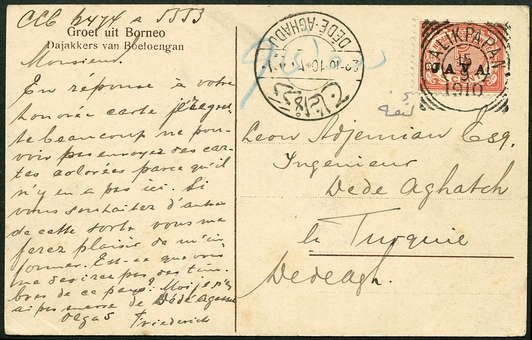 CCC 2474 a 5553
Groet uit Borneo
Dajakkers van Boeloengan
Monsieur.
En réponse à votre
honorée carte je regret-
te beaucoup ne pou-
voir pas envoyez des car-
tes colorées parce qu'il
n'y en a pas ici. Si
vous souhaitez d'autres
de cette sorte vous me
ferez plaisir de m'in
former. Est-ce que vous
ne desirez pas des tim-
bres de ce pays? Moi je n'
ai pas de Dedeagatsch
Friederich
DEDE-AGHADJ
BALIKPAPAN
15
JAVA.
1910
Leon Adjemian Esq.
Ingenieur
Dede Aghatch
la Turquie
Dedeagh.